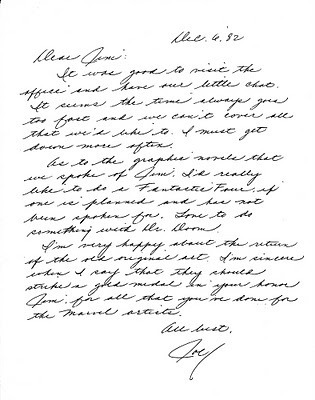 Dec. 6, '82
Dear Jim:
It was good to visit the
office and have our little chat.
It seems the time always goes
too fast and we can't cover all
that we'd like to. I must get
down more often.
As to the graphic novels that
we spoke of Jim. I'd really
like to do a Fantastic Four, if
one is planned and has not
been spoken for. Love to do
something with Dr. Doom.
I'm very happy about the return
of the old original art. I'm sincere
when I say that they should
strike a gold medal in your honor
Jim. for all that you've done for
the Marvel artists.
All best,
Joe